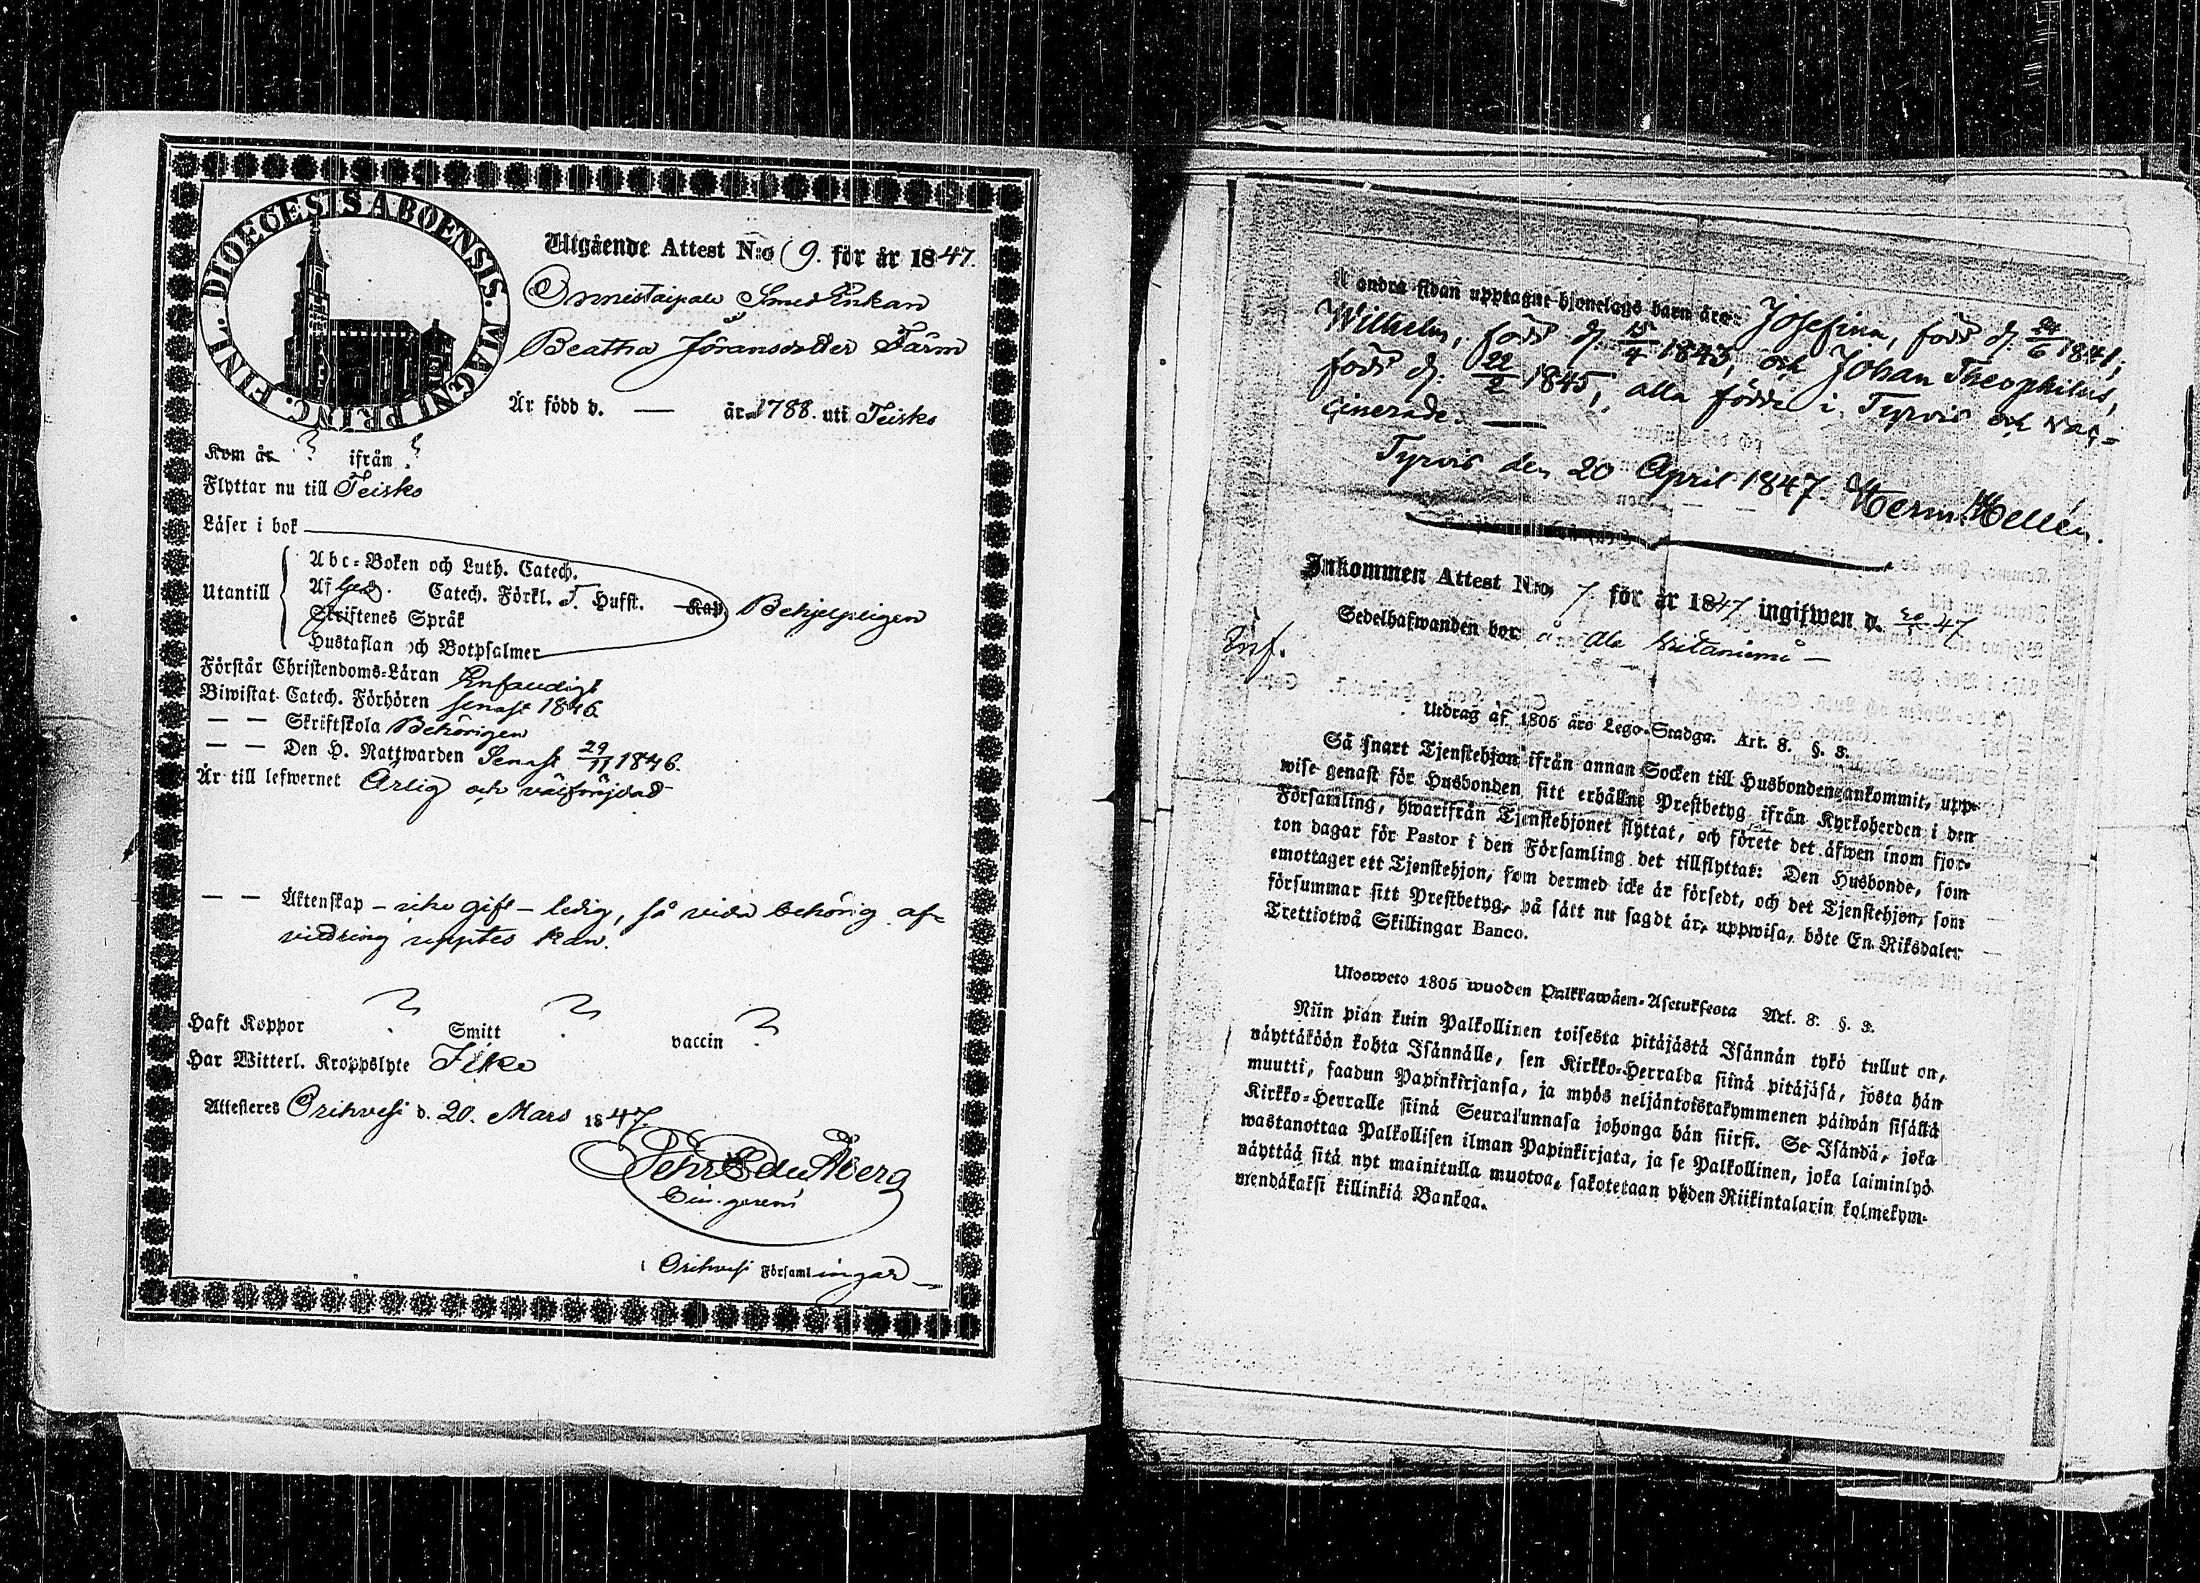 DIOECESIS ABOENSIS. MAGNI PRINC. FINL.
Utgående Attest N:o 9. för år 1847.
Smed Enkan
Beatha Jöransdotter Färm
Är född d. — år 1788. uti Teisko
Kom år ? ifrån ?
Flyttar nu till Teisko
Läser i bok
Utantill
Abc-Boken och Luth. Catech.
Af Catech. Förkl. T. Hufst. Kap. Behjelpligen
Skriftenes Språk
Hustaflan och Botpsalmer
Förstår Christendoms-Läran Enfaldigt
Biwistat Catech. Förhören senast 1846.
— — Skriftskola Behörigen
— — Den H. Nattwarden Senast 29/11 1846.
Är till lefwernet Ärlig och välfrejdad
— — Äktenskap – icke gift – ledig, så vida behörig af-
vittring uppstes kan.
Haft Koppor ? Smitt ? vaccin ?
Har Witterl. Kroppslyte Icke
Attesteras Orihvesi d. 20. Mars 1847.
Pehr Edv Åberg
i Orihvesi Församlingar
Å andra sidan upptagne hjonelags barn äro: Josefina, född d. 24/6 1841;
Wilhelm, född d. 15/4 1843; och Johan Theophilus,
född d. 22/2 1845; alla födde i Tyrvis och vac-
cinerade. —
Tyrvis den 20 April 1847. Herm. Hellén.
Inkommen Attest N:o 7 för år 1847 ingifwen d. 47
Sedelhafwanden bor å Ala
Inf.
Utdrag af 1805 års Lego-Stadga. Art. 8. §. 3.
Så snart Tjenstehjon ifrån annan Socken till Husbonden ankommit, upp-
wise genast för Husbonden sitt erhållne Prestbetyg ifrån Kyrkoherden i den
Församling, hwarifrån Tjenstehjonet flyttat, och förete det äfwen inom fjor-
ton dagar för Pastor i den Församling det tillflyttat: Den Husbonde, som
emottager ett Tjenstehjon, som dermed icke är försedt, och det Tjenstehjon, som
försummar sitt Prestbetyg, på sätt nu sagdt är, uppwisa, böte En Riksdaler
Trettiotwå Skillingar Banco.
Ulosweto 1805 wuoden Palkkawäen-Asetuksesta Art. 8. §. 3.
Niin pian kuin Palkollinen toisesta pitäjästä Isännän tykö tullut on,
näyttäköön kohta Isännälle, sen Kirkko-Herralda siinä pitäjäsä, josta hän
muutti, saadun Papinkirjansa, ja myös neljäntoistakymmenen päiwän sisällä
Kirkko-Herralle siinä Seurakunnasa johonga hän siirsi. Se Isändä, joka
wastanottaa Palkollisen ilman Papinkirjata, ja se Palkollinen, joka laiminlyö
näyttää sitä nyt mainitulla muotoa, sakotetaan yhden Riikintalarin kolmekym-
mendäkaksi killinkiä Bankoa.